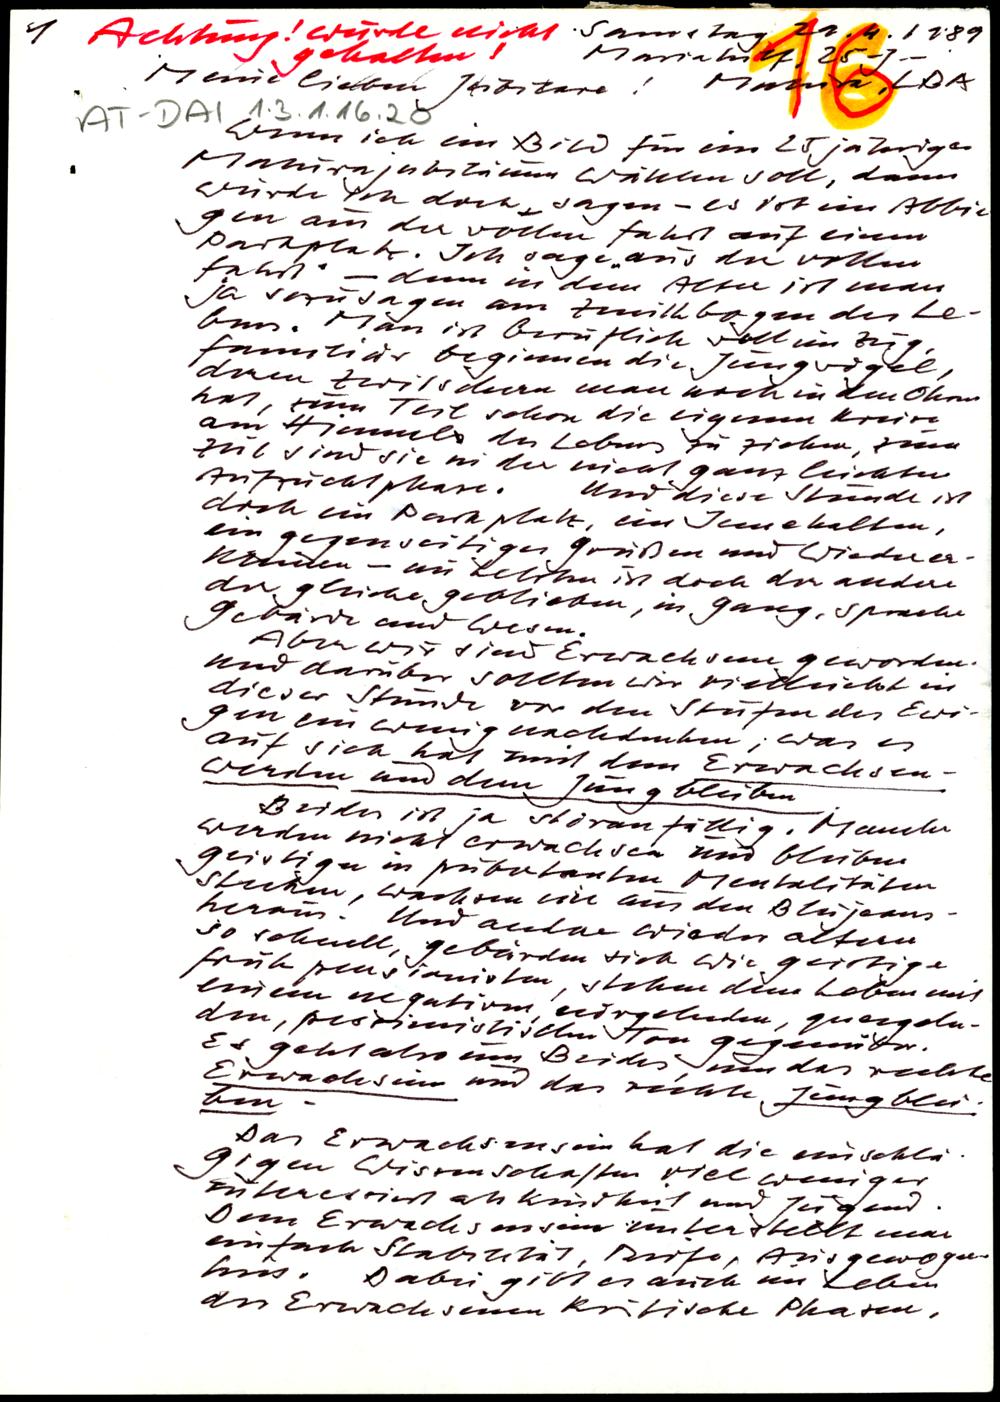 1
Achtung! wurde nicht
gehalten!
Samstag 29.4.1989
Mariahilf, 25-J-
Matura, LBA
16
Meine lieben Jubilare!
AT-DAI 1.3.1.16.20
Wenn ich ein Bild für ein 25jähriges
Maturajubiläum wählen soll, dann
würde ich doch sagen – es ist ein Abbie-
gen aus der vollen Fahrt auf einen
Parkplatz. Ich sage „aus der vollen
Fahrt“ – denn in dem Alter ist man
ja sozusagen am des Le-
bens. Man ist beruflich voll im Zug,
familiär beginnen die Jungvögel,
deren Zwitschern man noch in den Ohren
hat, zum Teil schon die eigenen Kreise
am Himmel des Lebens zu ziehen, zum
Teil sind sie in der nicht ganz leichten
Aufzuchtphase. Und diese Stunde ist
doch ein Parkplatz, ein Innehalten,
ein gegenseitiges Grüßen und Wiederer-
kennen – im ist doch der andere
der gleiche geblieben, in Gang, Sprache
Gebärde und Wesen.
Aber wir sind Erwachsene geworden.
Und darüber sollten wir vielleicht in
dieser Stunde vor den Stufen des Ewi-
gen ein wenig nachdenken, was es
auf sich hat mit dem Erwachsen-
werden und dem Jungbleiben
Beides ist ja störanfällig. Manche
werden nicht erwachsen und bleiben
geistig in pubertanten Mentalitäten
stecken, wachsen nie aus den Blujeans
heraus. Und andere wieder altern
so schnell, gebärden sich wie geistige
Frühpensionisten, stehen dem Leben mit
einem negativen, nörgelnden, quengeln-
den, pessimistischen Ton gegenüber.
Es geht also um Beides, um das rechte
Erwachsensein und das rechte Jungblei-
ben –
Das Erwachsensein hat die einschlä-
gigen Wissenschaften viel weniger
interessiert als Kindheit und Jugend.
Dem Erwachsensein unterstellt man
einfach Stabilität, Reife, Ausgewogen-
heit. Dabei gibt es auch im Leben
des Erwachsenen kritische Phasen,